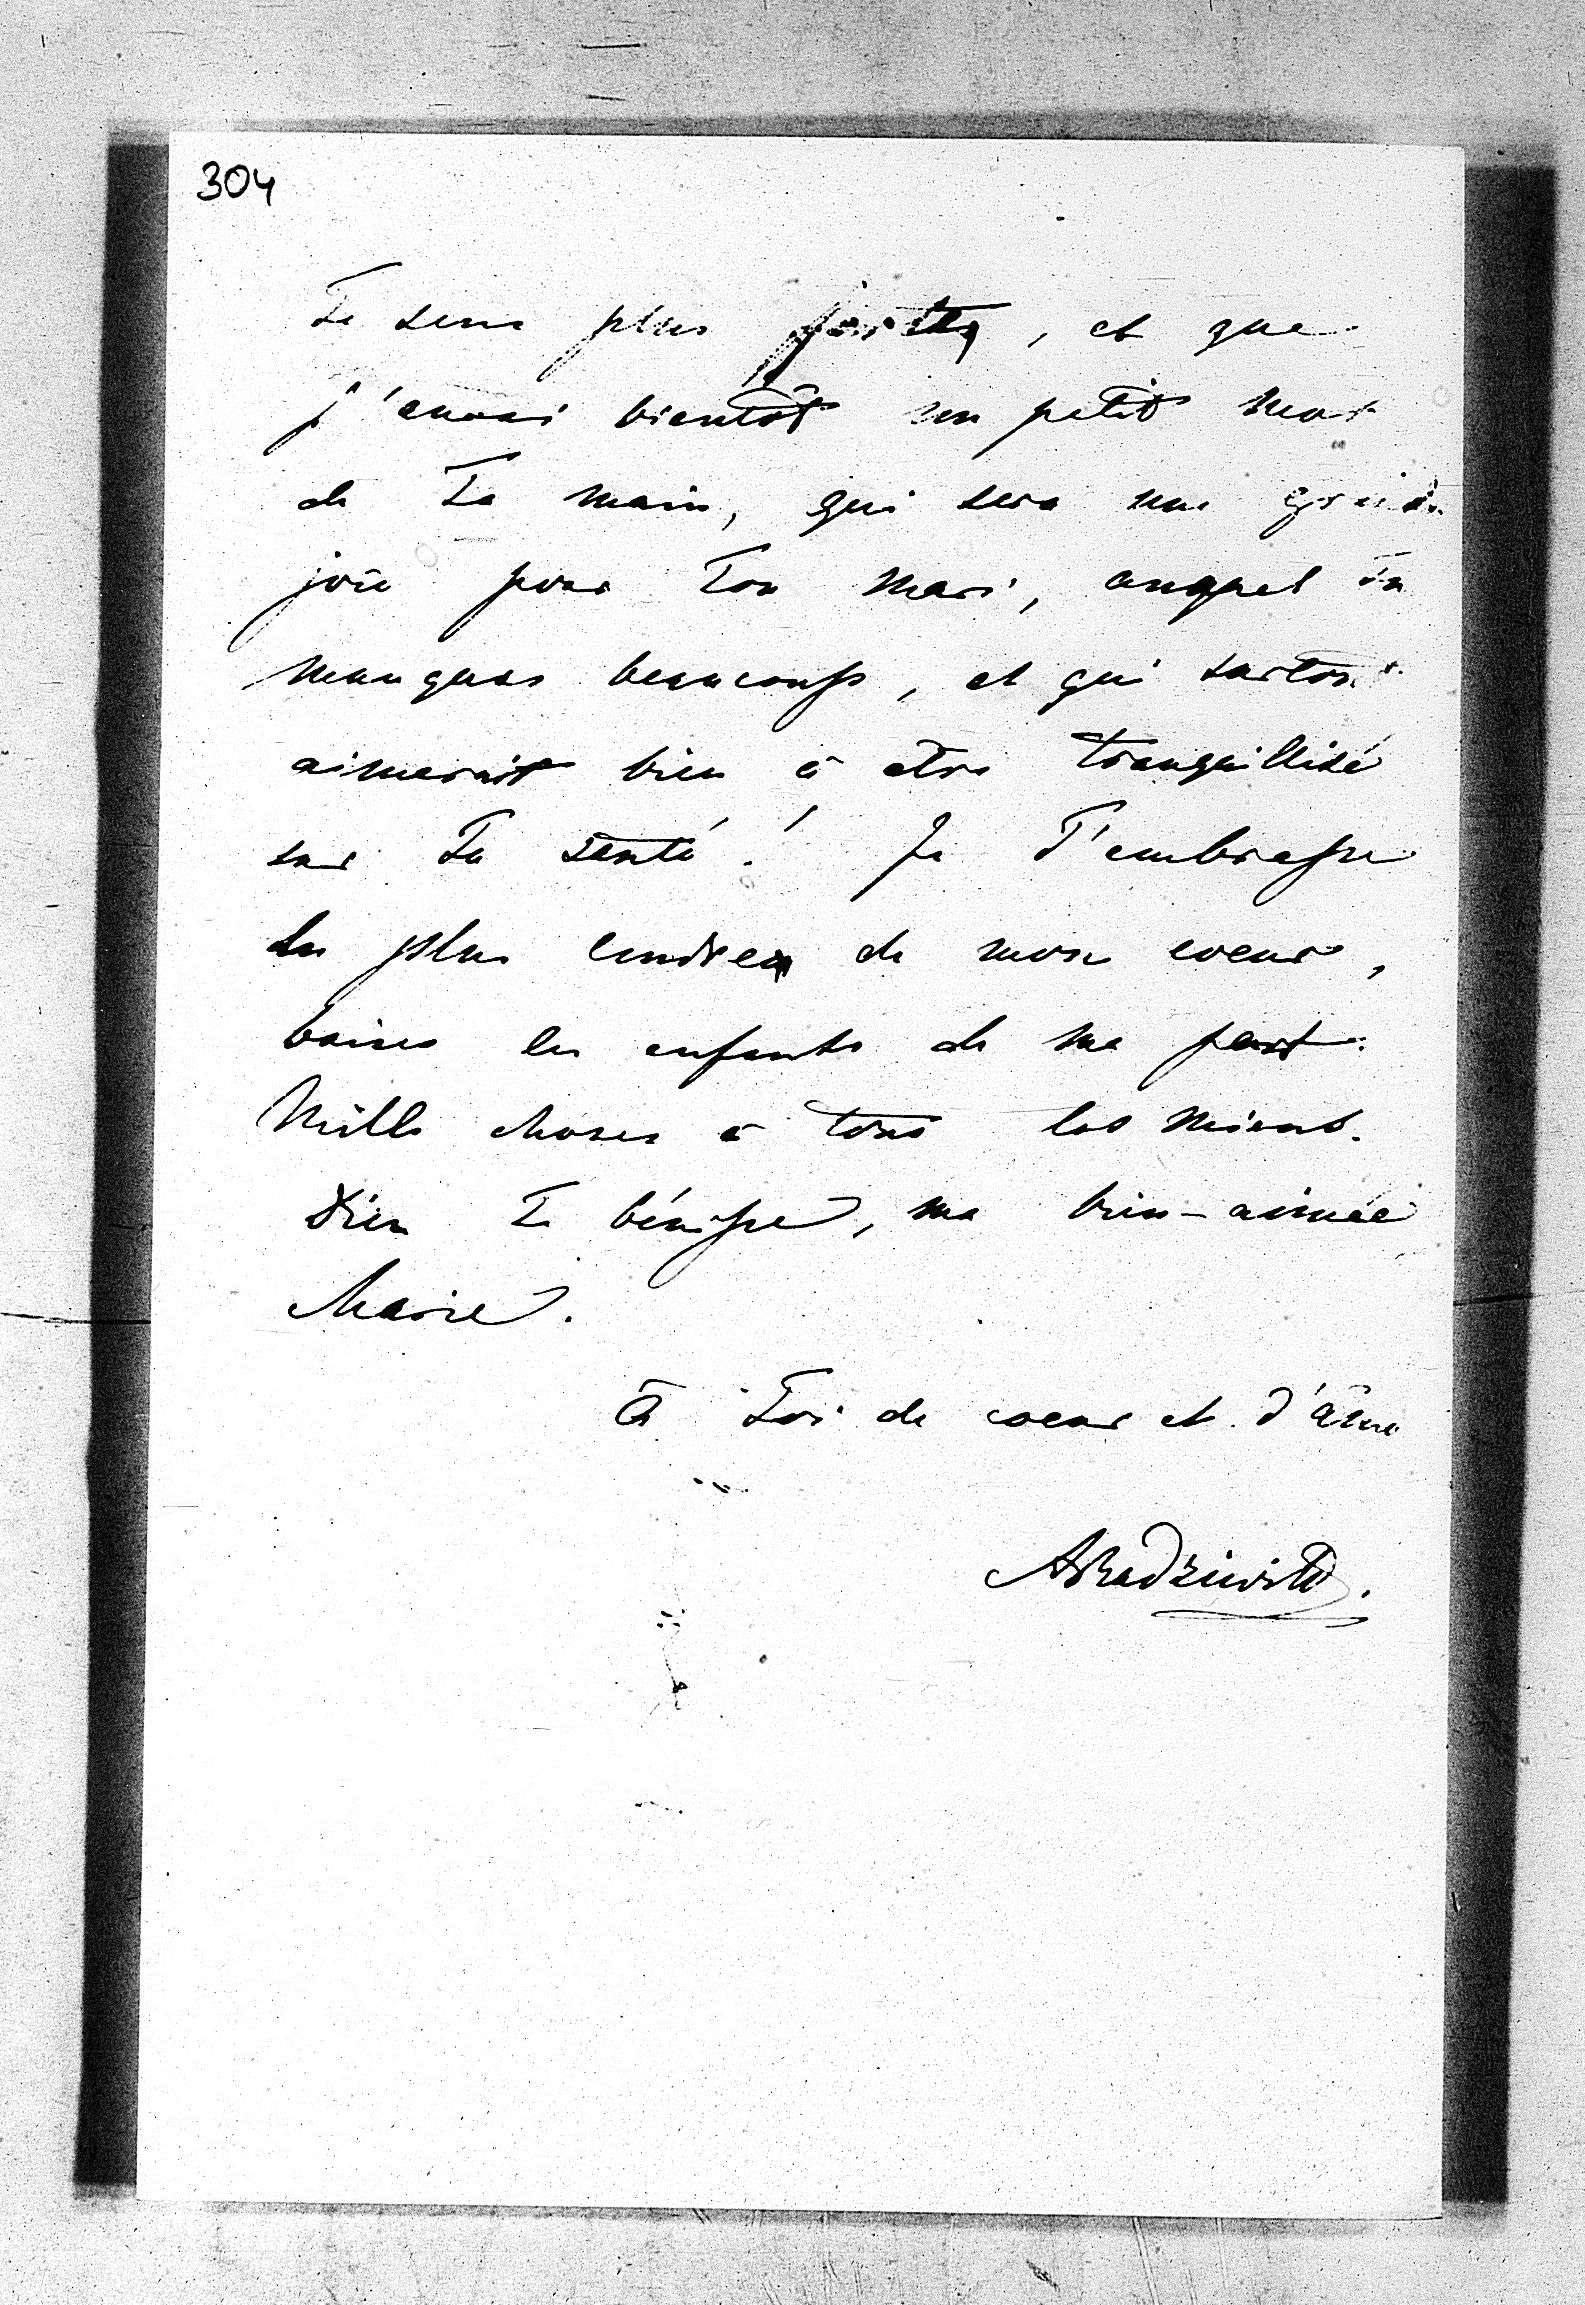 304
Te sens plus forte, et que
j'aurai bientôt un petit mot
de Ta main, qui sera une grande
joie pour Ton mari, auquel Tu
manques beaucoup, et qui surtout
aimerait bien à être tranquillisé
sur Ta santé! Je T'embrasse
du plus tendre de mon coeur,
baises les enfants de ma part.
Mille choses à tous les miens.
Dieu Te bénisse, ma bien-aimée
Marie.
à Toi de coeur et d'âme
ARadziwill.